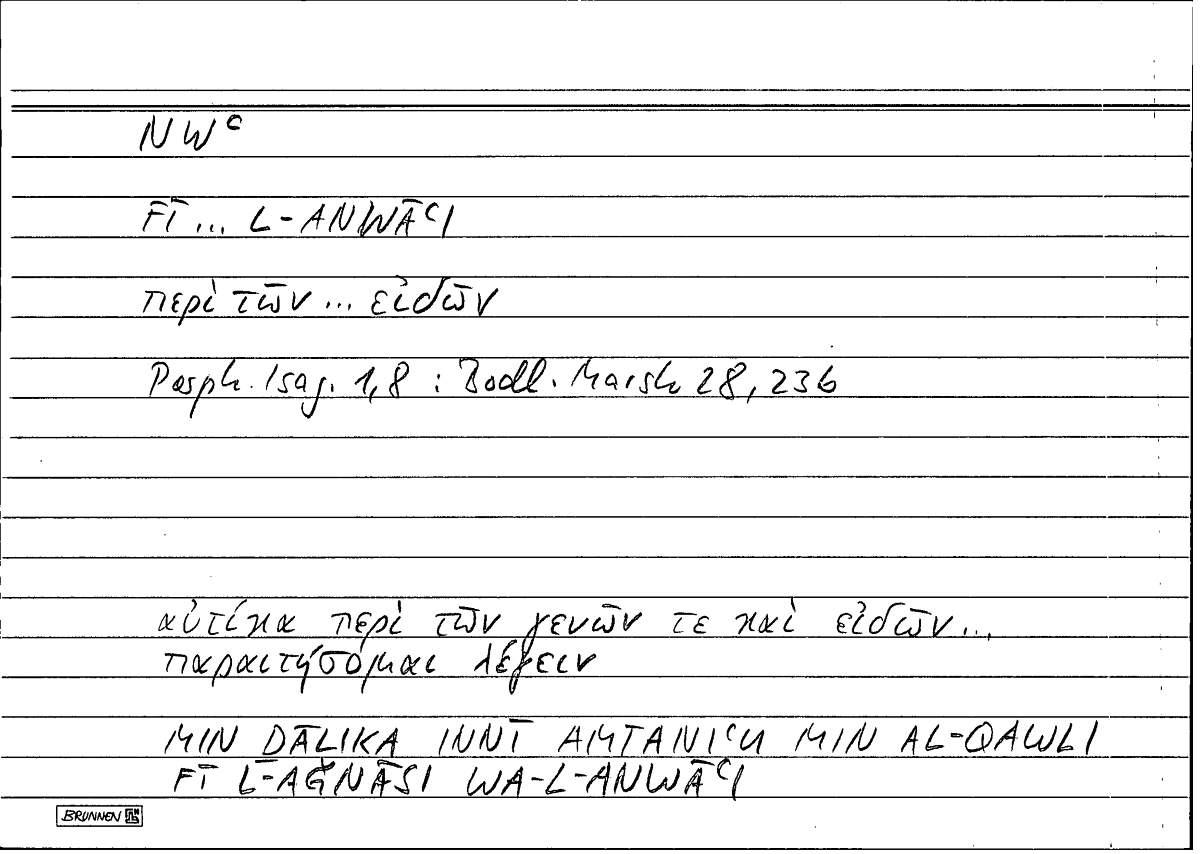 NWʿ
FĪ ... L-ANWĀʿI
περὶ τῶν ... εἰδῶν
Porph. Isag. 1,8 : Bodl. Marsh 28, 23b
αὐτίκα περὶ τῶν γενῶν τε καὶ εἰδῶν...
παραιτήσομαι λέγειν
MIN ḎĀLIKA INNĪ AMTANIʿU MIN AL-QAWLI
FĪ L-AǦNĀSI WA-L-ANWĀʿI
BRUNNEN